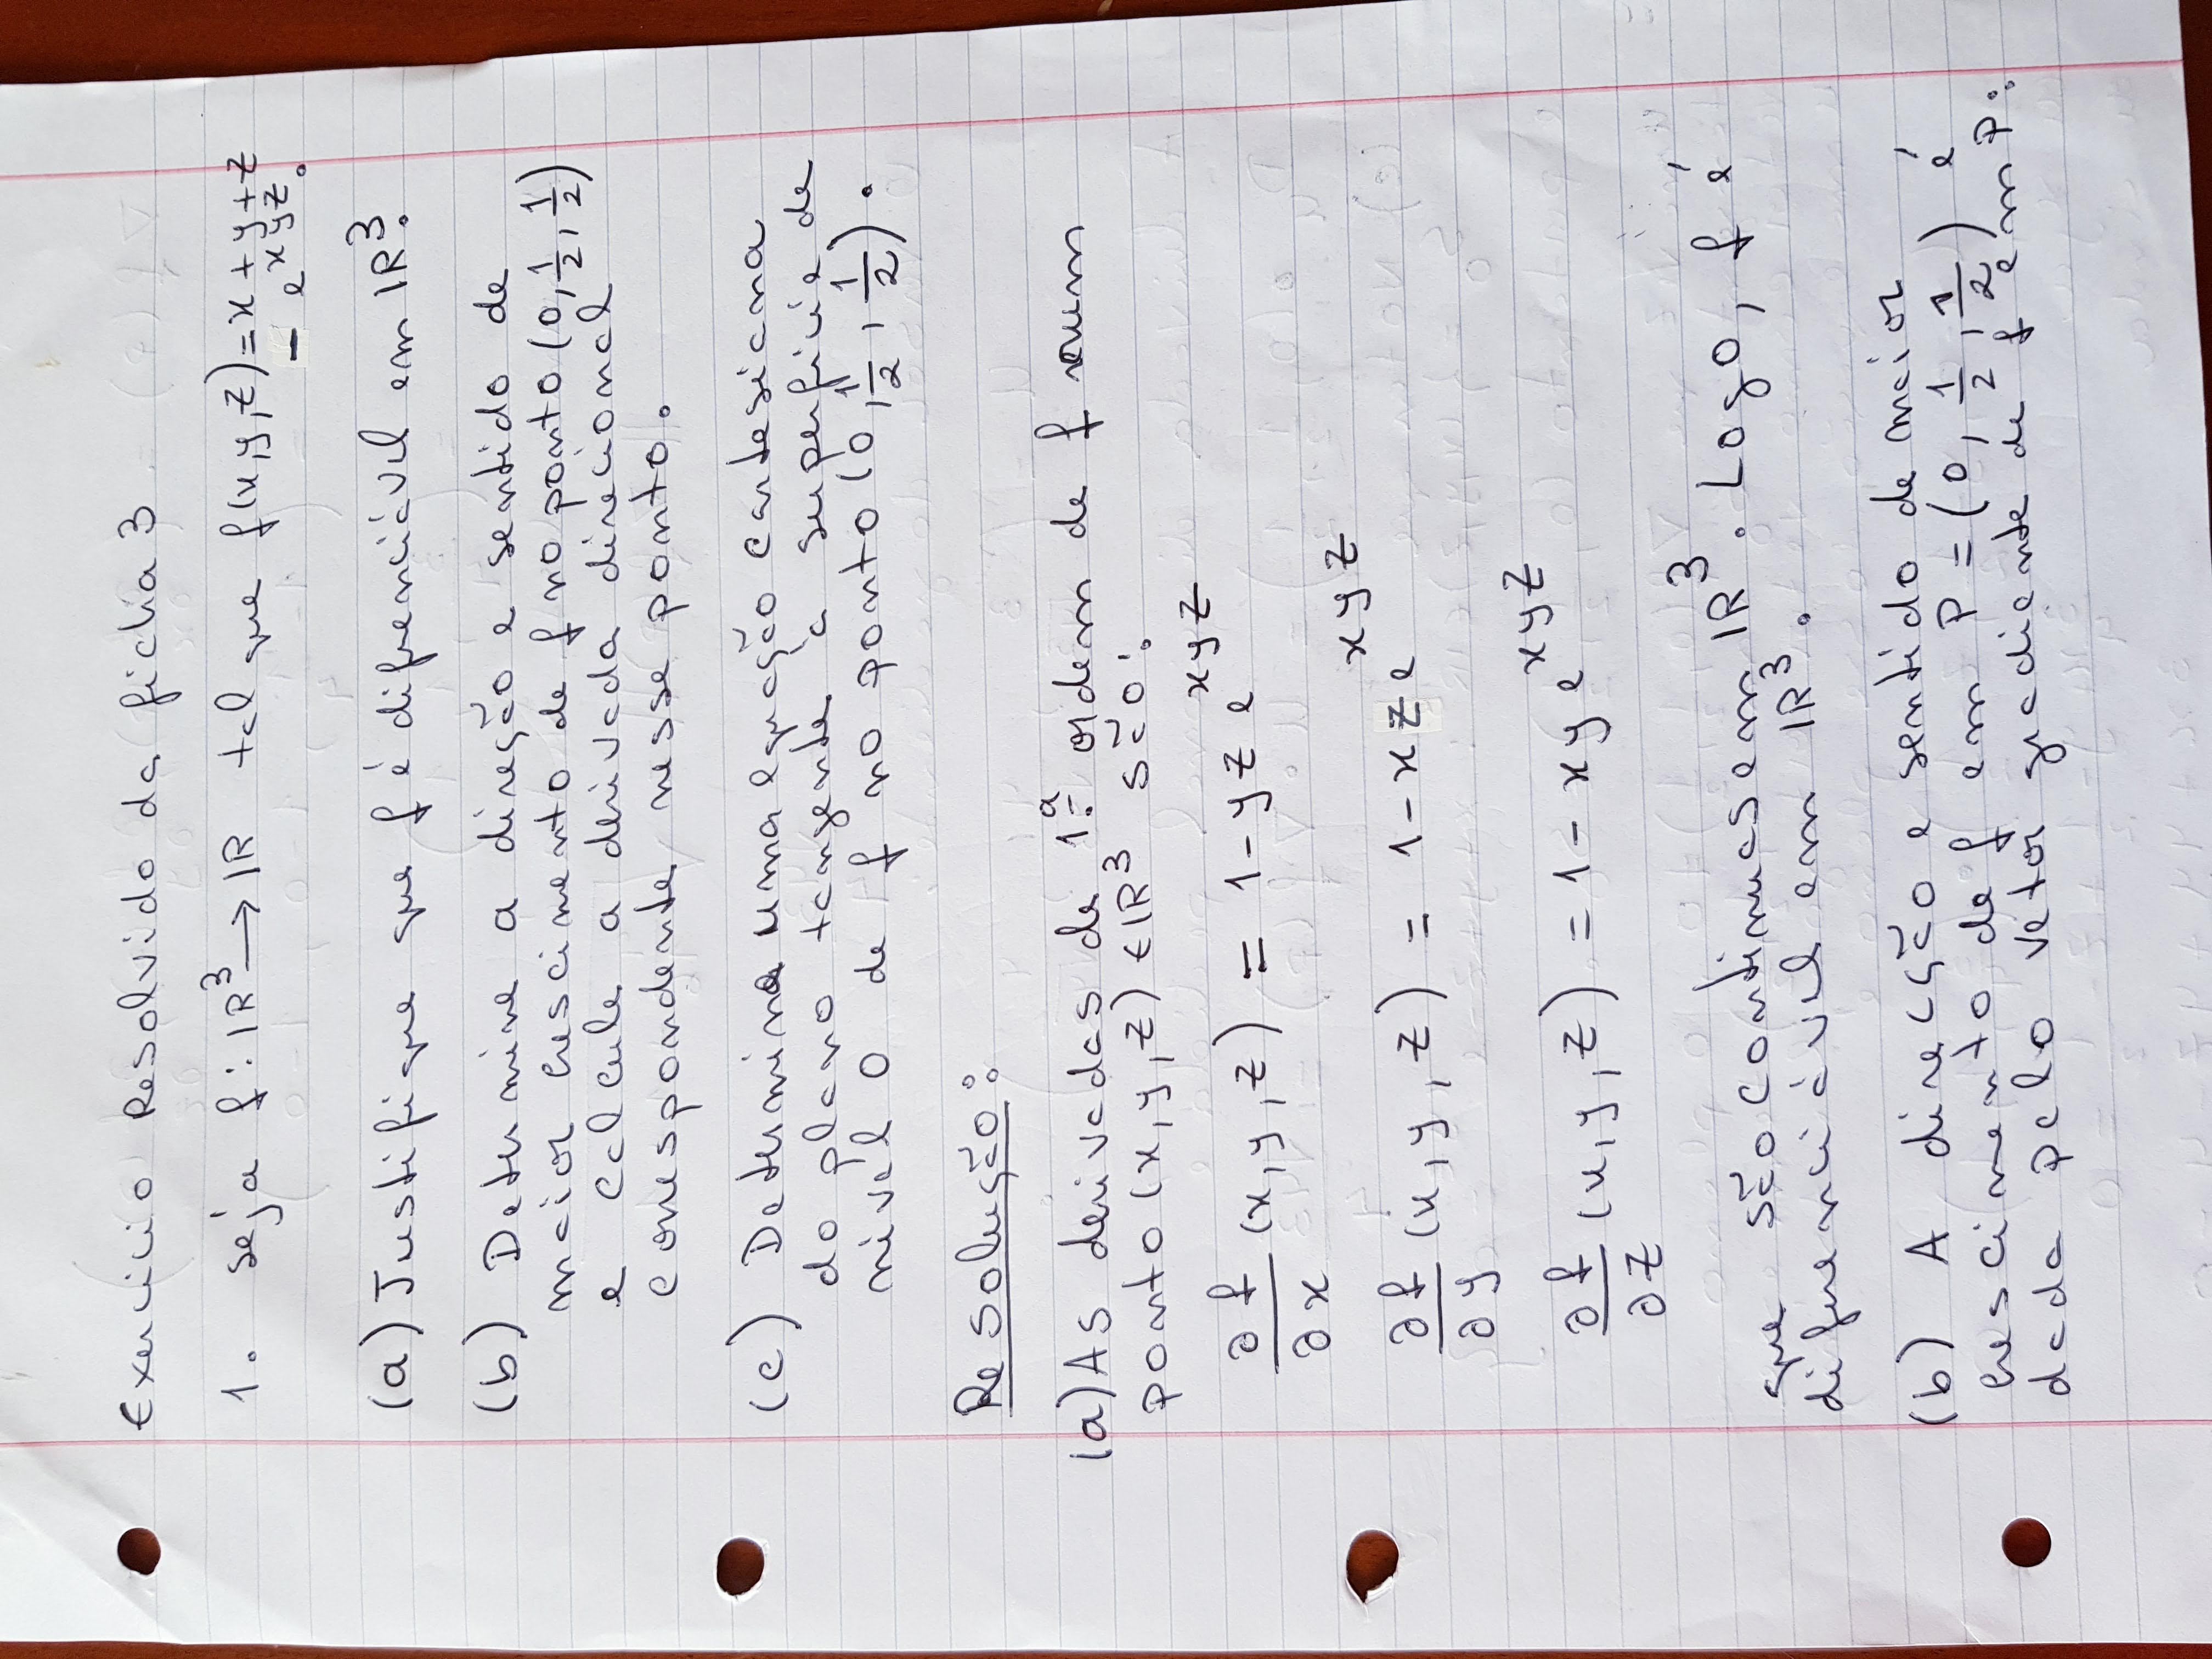 Exercício Resolvido da ficha 3
1. Seja f: ℝ³ → ℝ tal que f(x,y,z) = x + y + z
- e^{xyz}.
(a) Justifique que f é diferenciável em ℝ³.
(b) Determine a direção e sentido de
maior crescimento de f no ponto (0, 1/2, 1/2)
e calcule a derivada direcional
correspondente nesse ponto.
(c) Determine uma equação cartesiana
do plano tangente à superfície de
nível 0 de f no ponto (0, 1/2, 1/2).
Resolução:
(a) As derivadas de 1.ª ordem de f num
ponto (x,y,z) ∈ ℝ³ são:
∂f/∂x (x,y,z) = 1 - yz e^{xyz}
∂f/∂y (x,y,z) = 1 - xz e^{xyz}
∂f/∂z (x,y,z) = 1 - xy e^{xyz}
que são contínuas em ℝ³. Logo, f é
diferenciável em ℝ³.
(b) A direcção e sentido de maior
crescimento de f em P = (0, 1/2, 1/2) é
dada pelo vetor gradiente de f em P: